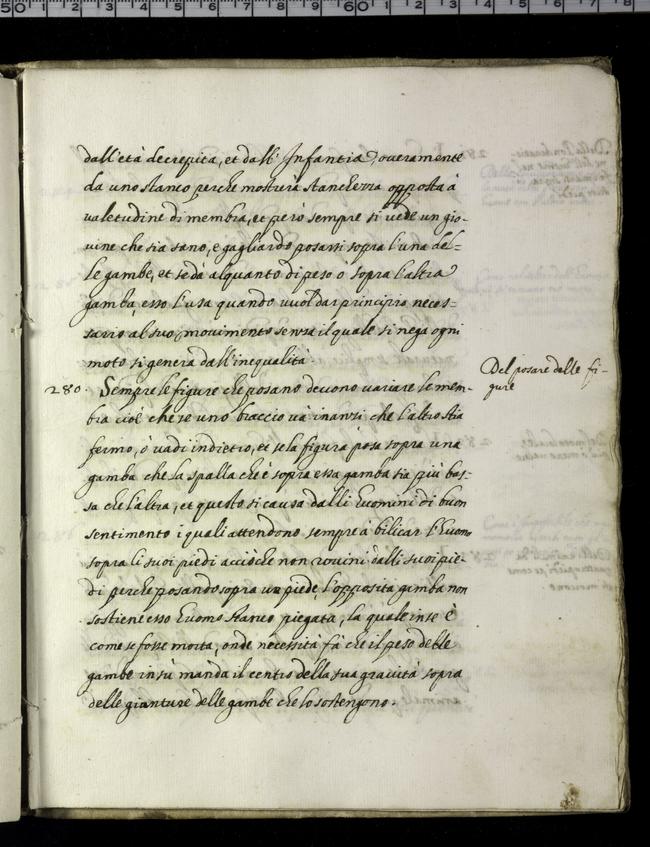 dall'età decrepita, et dall' Infantia, overamente
da uno stanco perche mostrerà stanchezza opposta à
valetudine di membra, et però sempre si vede un gio-
vine che sia sano, e gagliardo posarsi sopra l'una del=
le gambe, et se dà alquanto di peso ò sopra l'altra
gamba, esso l'usa quando vuol dar principio neces=
sario al suo movimento senza il quale si nega ogni
moto si genera dall'inequalità.
280. Sempre le figure che posano devono variare le mem-
bra cioè che se uno braccio và inanzi che l'altro stia
fermo, ò vadi indietro, et se la figura posa sopra una
gamba che la spalla che è sopra essa gamba sia più bas-
sa che l'altra, et questo si causa dalli Huomini di buon
sentimento i quali attendono sempre à bilicar l'Huomo
sopra li suoi piedi acciòche non rovini dalli suoi pie-
di perche posando sopra un piede, l'opposita gamba non
sostiene esso Huomo stanco piegata, la quale in se è
come se fosse morta, onde necessità fà che il peso delle
gambe in sù manda il centro della sua gravità sopra
delle gionture delle gambe che lo sostengono.
Del posare delle fi-
gure